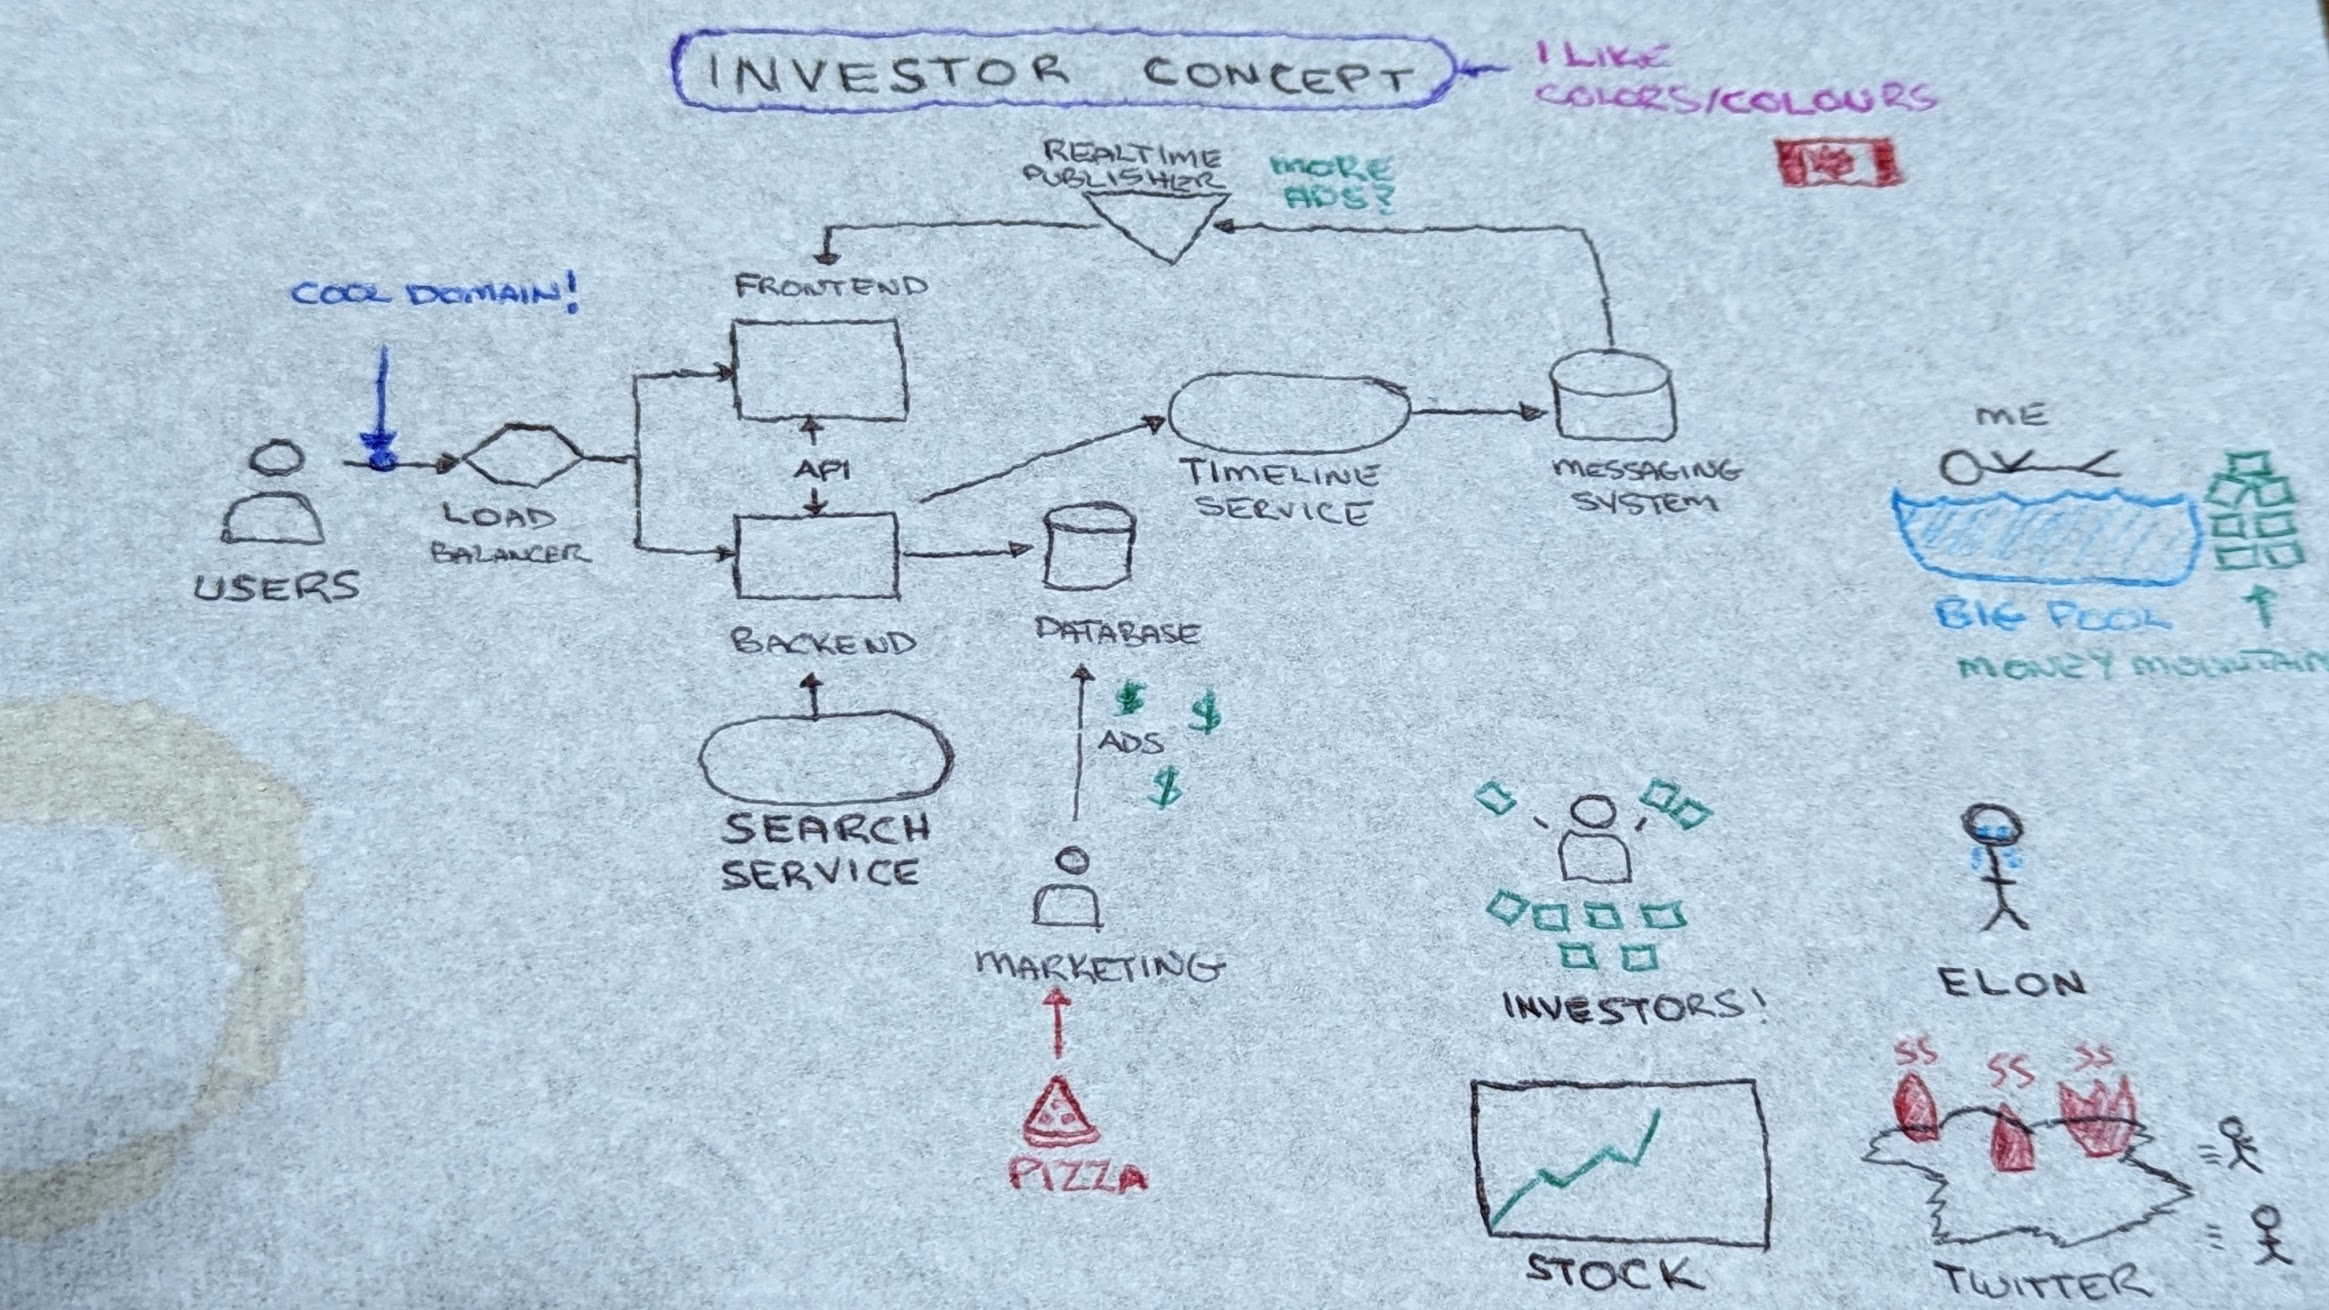 INVESTOR CONCEPT
I LIKE
COLORS/COLOURS
REALTIME
PUBLISHER
MORE
ADS?
COOL DOMAIN!
FRONTEND
API
LOAD
BALANCER
USERS
TIMELINE
SERVICE
MESSAGING
SYSTEM
ME
BIG POOL
MONEY MOUNTAIN
BACKEND
DATABASE
$ $
ADS
$
SEARCH
SERVICE
MARKETING
PIZZA
INVESTORS!
ELON
STOCK
SS SS SS
TWITTER